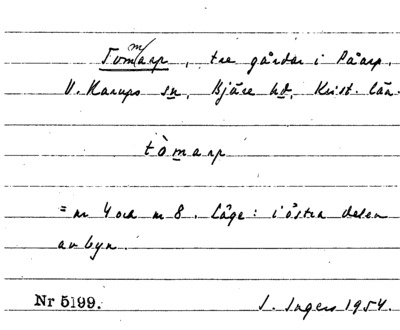 Tommarp, tre gårdar i Påarp,
V. Karups sn, Bjäre hd, Krist. län.
tòmarp
= nr 4 och nr 8. Läge: i östra delen
av byn.
Nr 5199. I. Ingers 1954.